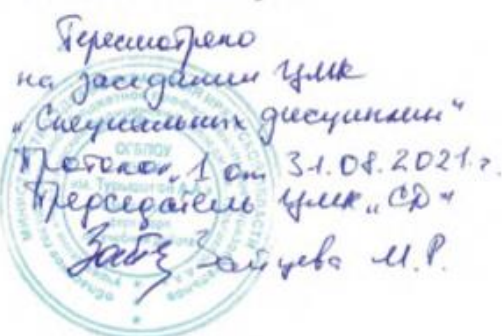 Пересмотрено
на заседании ЦМК
„Специальных дисциплин“
Протокол „1 от 31.08.2021 г.
Председатель ЦМК „СД“
Зайцева М.Р.
ОГБПОУ